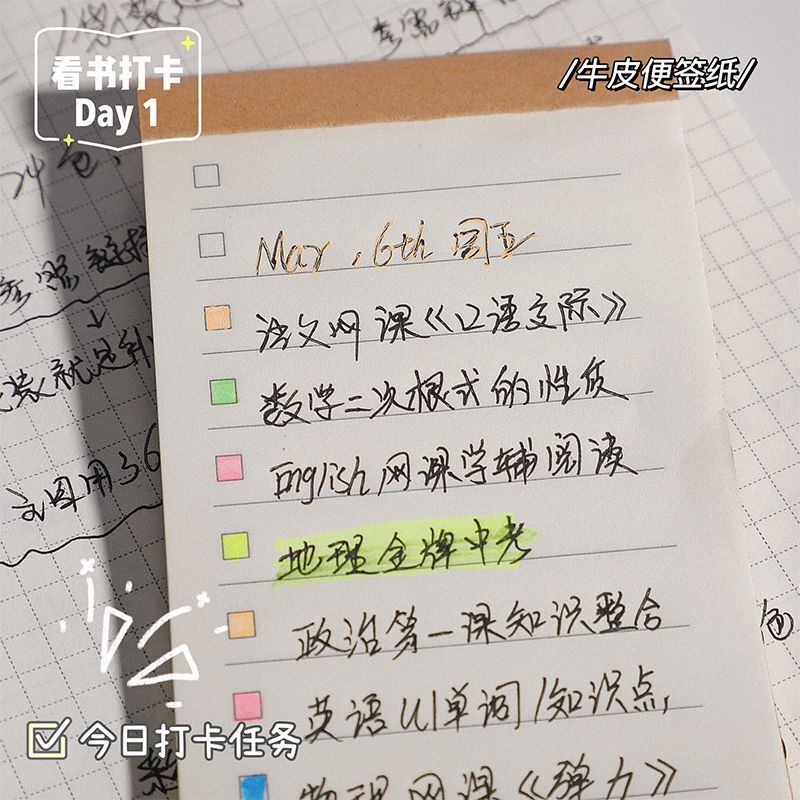 看书打卡
Day 1
/牛皮便签纸/
Mar , 6th 周五
语文网课《口语交际》
数学二次根式的性质
English 网课学辅阅读
地理金牌中考
政治第一课知识整合
英语U1单词/知识点,
物理网课《弹力》
今日打卡任务